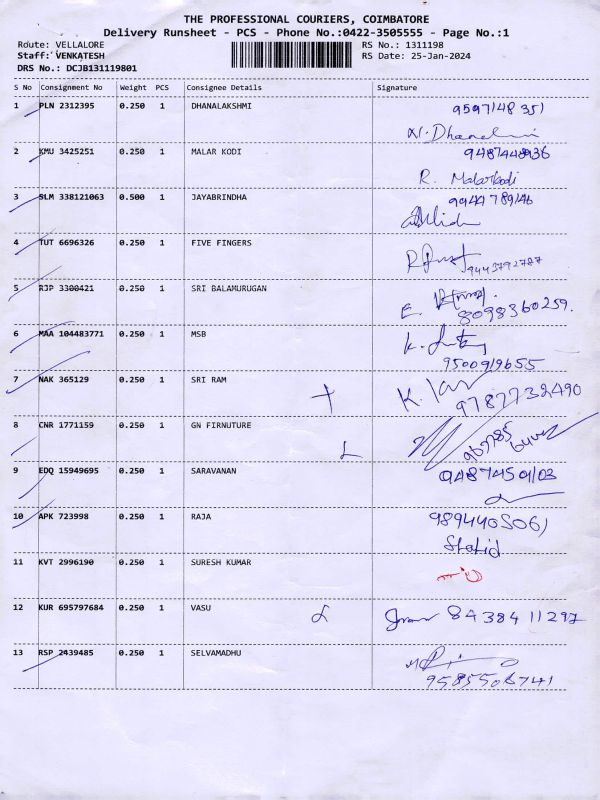 THE PROFESSIONAL COURIERS, COIMBATORE
Delivery Runsheet - PCS - Phone No.:0422-3505555 - Page No.:1
Route: VELLALORE
RS No.: 1311198
Staff: VENKATESH
RS Date: 25-Jan-2024
DRS No.: DCJB131119801
S No Consignment No Weight PCS Consignee Details Signature
1 PLN 2312395 0.250 1 DHANALAKSHMI 9597148351
N. Dhanalaxmi
2 KMU 3425251 0.250 1 MALAR KODI 9487448936
R. Malarkodi
3 SLM 338121063 0.500 1 JAYABRINDHA 9944789146
4 TUT 6696326 0.250 1 FIVE FINGERS
9443792787
5 RJP 3300421 0.250 1 SRI BALAMURUGAN
E. 8098360259.
6 MAA 104483771 0.250 1 MSB K.
9500919655
7 NAK 365129 0.250 1 SRI RAM K.
9787732490
8 CNR 1771159 0.250 1 GN FIRNUTURE
L
9 EDQ 15949695 0.250 1 SARAVANAN 9487450103
10 APK 723998 0.250 1 RAJA 9894405061
11 KVT 2996190 0.250 1 SURESH KUMAR
12 KUR 695797684 0.250 1 VASU L 8438411297
13 RSP 2439485 0.250 1 SELVAMADHU
9585506741